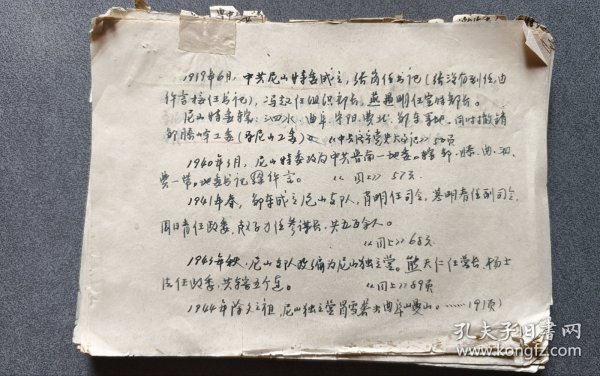 1919年6月，中共尼山特委成立，张 任书记（张没有到任，由
许言 任书记），冯起任组织部长，燕遇明任宣传部长。
尼山特委辖：泗水、曲阜、费北、邹东等地。同时撤销
邹滕 工委（ 尼山工委）《中共 大 记》50页
1940年3月，尼山特委改为中共鲁南一地委。辖邹、滕、曲、泗、
费一带。地委书记 许言。《同上》57页
1941年春，邹东成立尼山支队，肖明任司令， 明春任副司令，
周日青任政委， 任参谋长，共五百余人。
《同上》68页
1943年秋，尼山支队改编为尼山独立营。熊天仁任营长，杨士
法任政委，共 五个连。《同上》89页
1944年除夕之夜，尼山独立营冒雪袭击曲阜 山。……191页）
孔夫子旧书网
www.kongfz.com